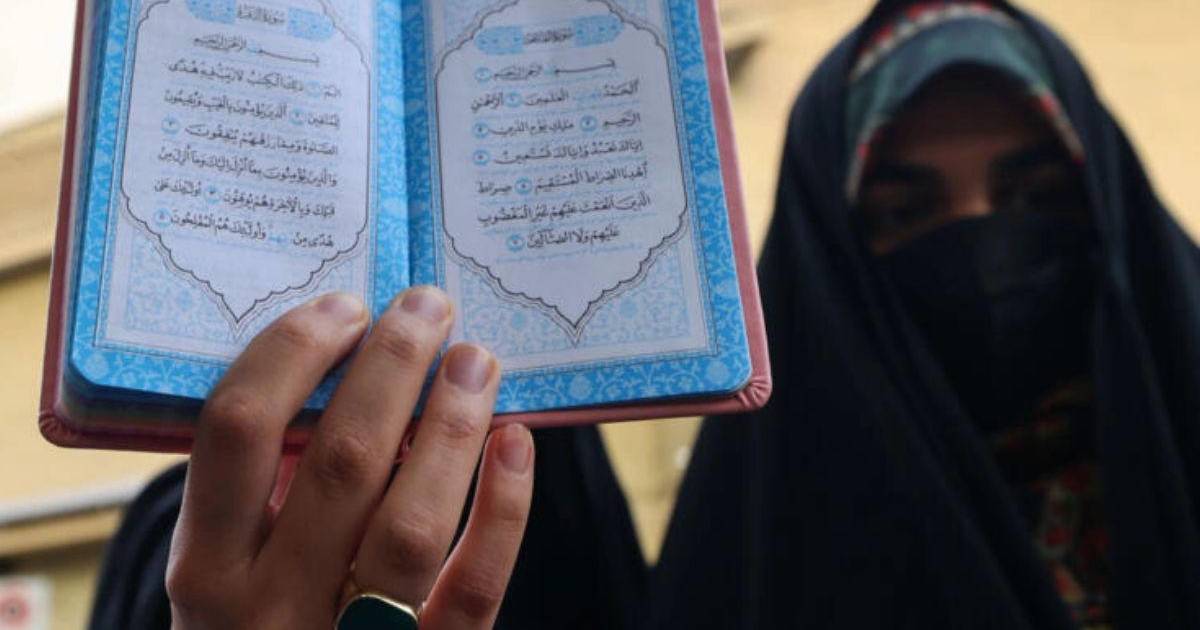 سُورَةُ الفَاتِحَةِ
بِسْمِ الرَّحْمَٰنِ الرَّحِيمِ ١
اَلْحَمْدُ الْعَٰلَمِينَ ٢ اَلرَّحْمَٰنِ
الرَّحِيمِ ٣ مَٰلِكِ يَوْمِ الدِّينِ ٤
إِيَّاكَ نَعْبُدُ وَإِيَّاكَ نَسْتَعِينُ ٥
اِهْدِنَا الصِّرَاطَ الْمُسْتَقِيمَ ٦ صِرَاطَ
الَّذِينَ أَنْعَمْتَ عَلَيْهِمْ غَيْرِ الْمَغْضُوبِ
عَلَيْهِمْ وَلَا الضَّالِّينَ ٧
سُورَةُ البَقَرَةِ
بِسْمِ الرَّحْمَٰنِ الرَّحِيمِ
الٓمٓ ١ ذَٰلِكَ الْكِتَٰبُ لَا رَيْبَ فِيهِ هُدًى
لِلْمُتَّقِينَ ٢ اَلَّذِينَ يُؤْمِنُونَ بِالْغَيْبِ وَيُقِيمُونَ
الصَّلَوٰةَ وَمِمَّا رَزَقْنَٰهُمْ يُنْفِقُونَ ٣
وَالَّذِينَ يُؤْمِنُونَ بِمَا أُنْزِلَ إِلَيْكَ وَمَا أُنْزِلَ مِنْ
قَبْلِكَ وَبِالْآخِرَةِ هُمْ يُوقِنُونَ ٤ أُولَٰئِكَ عَلَىٰ
هُدًى مِنْ رَبِّهِمْ وَأُولَٰئِكَ هُمُ الْمُفْلِحُونَ ٥